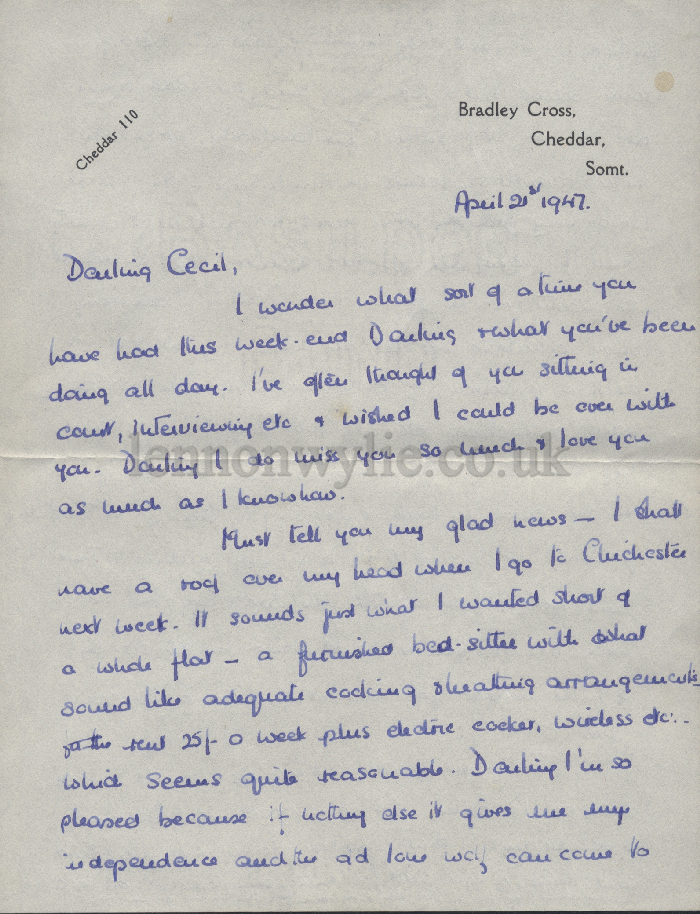 Cheddar 110
Bradley Cross,
Cheddar,
Somt.
April 21st 1947.
Darling Cecil,
I wonder what sort of a time you
have had this week-end Darling & what you've been
doing all day. I've often thought of you sitting in
court, interviewing etc & wished I could be over with
you. Darling I do miss you so much & love you
as much as I know how.
lennonwylie.co.uk
Must tell you my glad news – I shall
have a roof over my head when I go to Chichester
next week. It sounds just what I wanted short of
a whole flat – a furnished bed-sitter with what
sound like adequate cooking & heating arrangements
the rent 25/- a week plus electric cooker, wireless etc..
which seems quite reasonable. Darling I'm so
pleased because if nothing else it gives me my
independence and the odd can come to